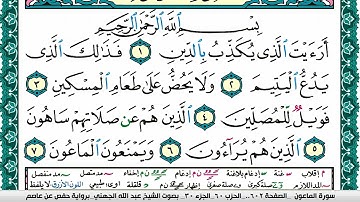 بِسْمِ اللَّهِ الرَّحْمَٰنِ الرَّحِيمِ
أَرَءَيْتَ الَّذِي يُكَذِّبُ بِالدِّينِ ١ فَذَٰلِكَ الَّذِي
يَدُعُّ الْيَتِيمَ ٢ وَلَا يَحُضُّ عَلَىٰ طَعَامِ الْمِسْكِينِ ٣
فَوَيْلٌ لِّلْمُصَلِّينَ ٤ الَّذِينَ هُمْ عَن صَلَاتِهِمْ سَاهُونَ
٥ الَّذِينَ هُمْ يُرَاءُونَ ٦ وَيَمْنَعُونَ الْمَاعُونَ ٧
سورة الماعون - الصفحة ٦٠٢ - الحزب ٦٠ - الجزء ٣٠ - بصوت الشيخ عبد الله الجهني برواية حفص عن عاصم